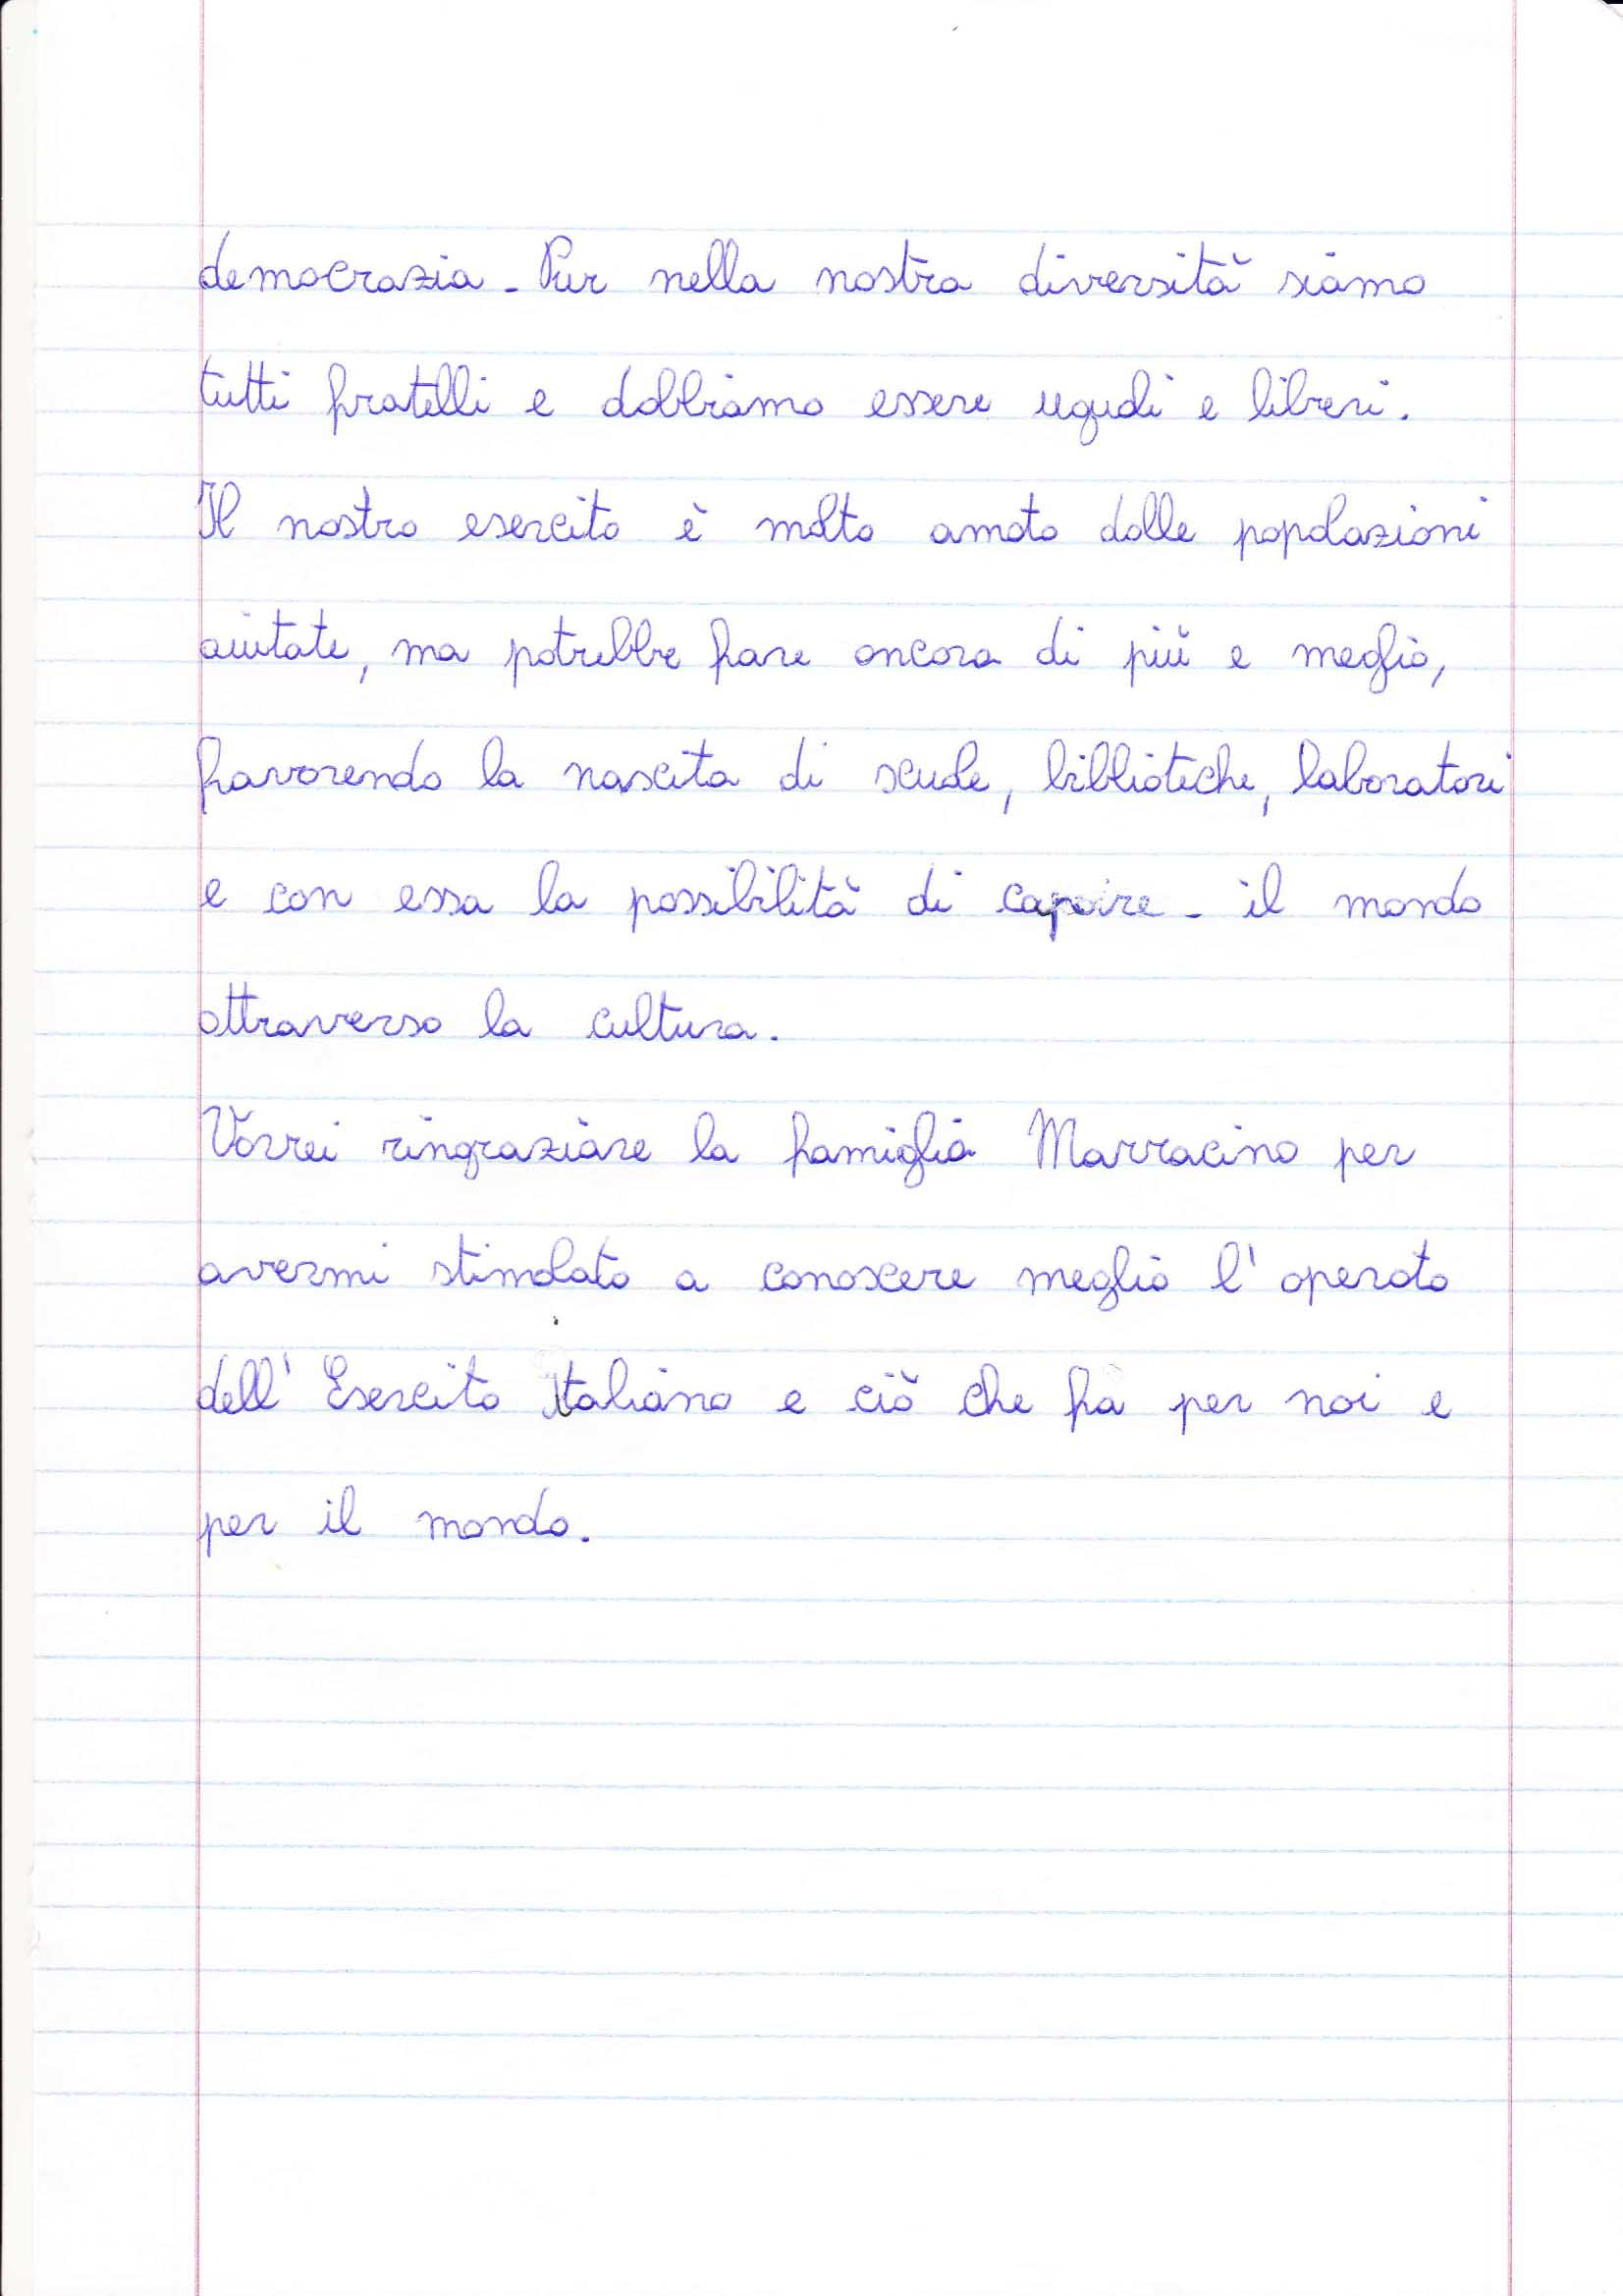 democrazia. Pur nella nostra diversità siamo
tutti fratelli e dobbiamo essere uguali e liberi.
Il nostro esercito è molto amato dalle popolazioni
aiutate, ma potrebbe fare ancora di più e meglio,
favorendo la nascita di scuole, biblioteche, laboratori
e con essa la possibilità di capire - il mondo
attraverso la cultura.
Vorrei ringraziare la famiglia Marracino per
avermi stimolato a conoscere meglio l'operato
dell'Esercito italiano e ciò che fa per noi e
per il mondo.